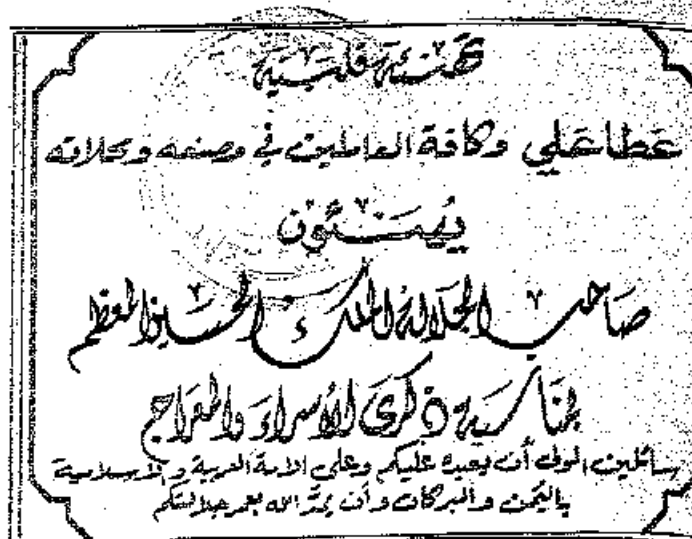 تهنئة قلبية
عطا علي وكافة العاملين في مصنعه ومحلاته
يهنئون
صاحب الجلالة الملك الحسين المعظم
بمناسبة ذكرى الأسراء والمعراج
سائلين المولى أن يعيده عليكم وعلى الامة العربية والاسلامية
باليمن والبركات وأن يمدّ الله بعمر جلالتكم